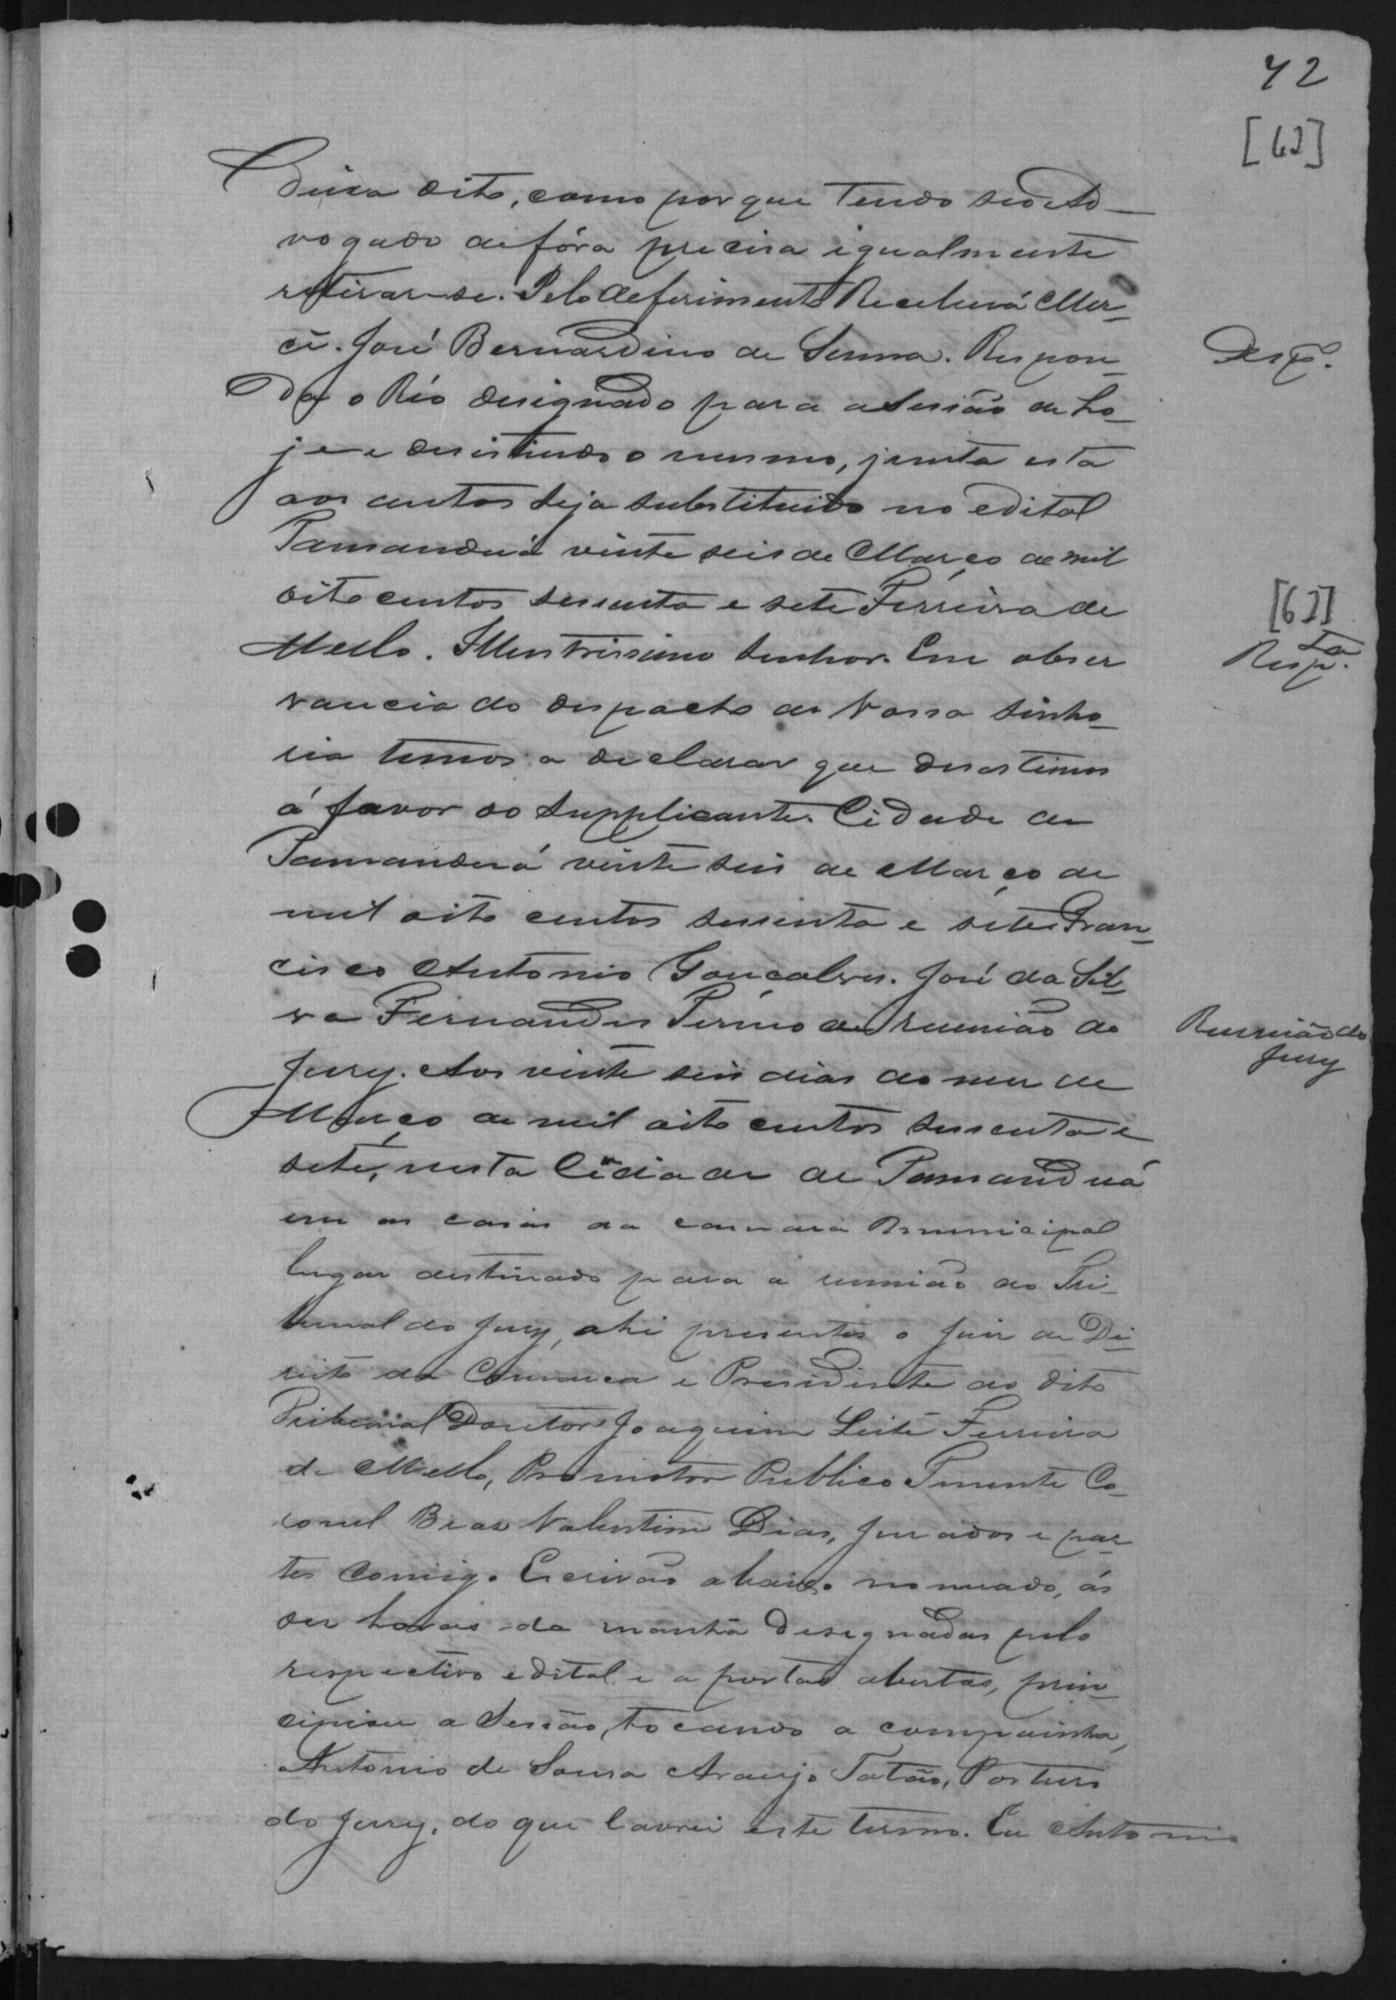 42
[62]
Deixa dito, como porque tendo seo Ad-
vogado de fóra precisa igualmente
retirar-se. Pelo deferimento Receberá Mer-
cê. José Bernardino de Senna. Respon-
Desp.
da o Réo designado para a Sessão de ho-
je e desistindo o mesmo, junta esta
aos autos seja substituido no edital
Tamanduá vinte seis de Março de mil
oito centos sessenta e sete Ferreira de
[62]
Mello. Illustrissimo Senhor. Em obser
Resp.ta
vancia do despacho de Vossa Senho-
ria temos a declarar que desestimos
á favor do Supplicante. Cidade de
Tamanduá vinte seis de Março de
mil oito centos sessenta e sete Fran-
cisco Antonio Gonçalves. José da Sil-
va Fernandes Termo de reunião do
Reunião do
Jury
Jury. Aos vinte seis dias do mez de
Março de mil oito centos sessenta e
sete, nesta Cidade de Tamanduá
em as casas da camara Municipal
lugar destinado para a reunião do Tri-
bunal do Jury, ahi presentes o Juiz de Di-
reito da Comarca e Presidente do dito
Tribunal Doutor Joaquim Leite Ferreira
de Mello, Promotor Publico Tenente Co-
ronel Braz Valentim Dias, Jurados e par-
tes comigo Escrivão abaixo nomeado, ás
dez horas da manhã designadas pelo
respectivo edital e a portas abertas, prin-
cipiou a Sessão, tocando a campainha,
Antonio de Sousa Araujo Tatão, Porteiro
do Jury, do que lavrei este termo. Eu Antonio